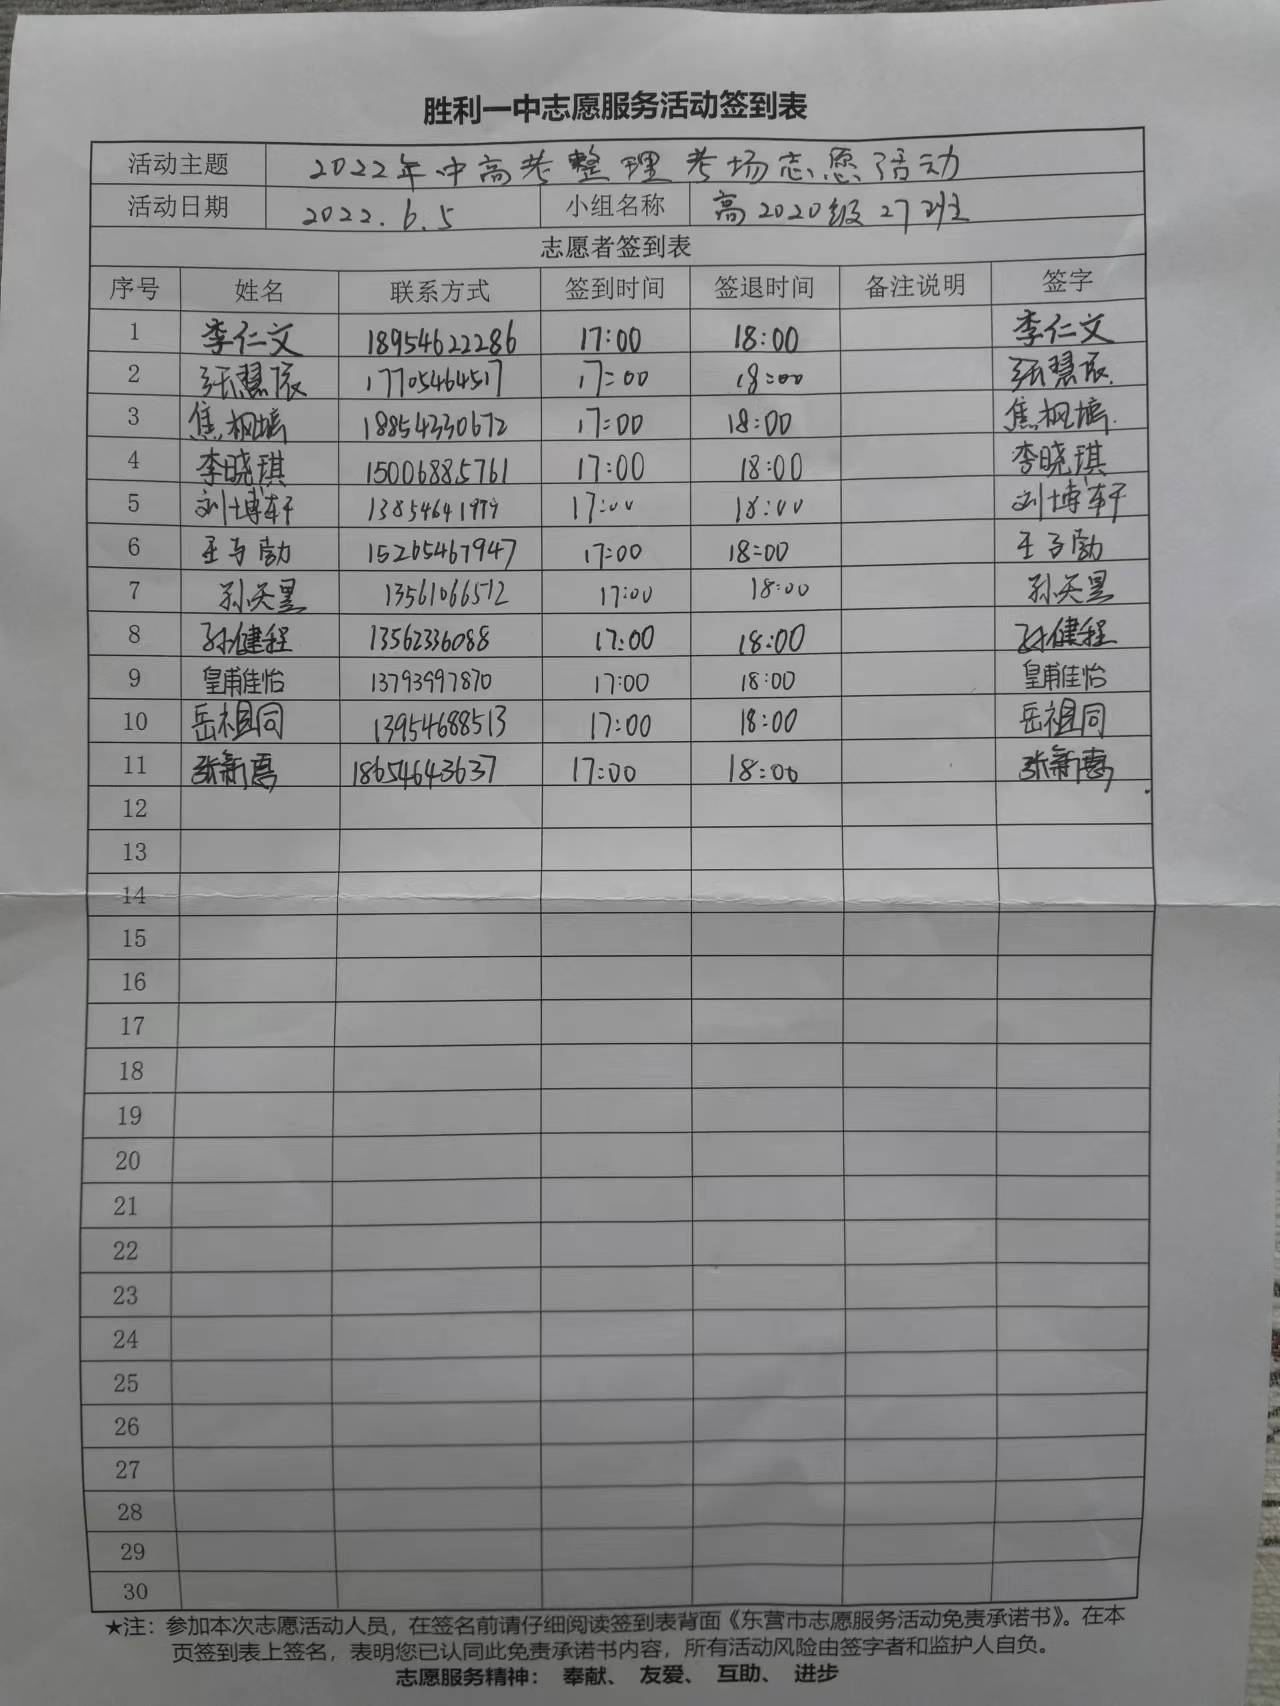 胜利一中志愿服务活动签到表
活动主题 2022年中高考整理考场志愿活动
活动日期 2022.6.5 小组名称 高2020级27班
志愿者签到表
序号 姓名 联系方式 签到时间 签退时间 备注说明 签字
1 李仁文 18954622286 17:00 18:00 李仁文
2 张慧 17705464517 17:00 18:00 张慧
3 焦枫 18854330672 17:00 18:00 焦枫
4 李晓琪 15006885761 17:00 18:00 李晓琪
5 刘博轩 17:00 18:00 刘博轩
6 王 勋 15265467947 17:00 18:00 王 勋
7 孙天昱 13561066512 17:00 18:00 孙天昱
8 孙健程 13562336088 17:00 18:00 孙健程
9 皇甫佳怡 13793997870 17:00 18:00 皇甫佳怡
10 岳祖同 13954688513 17:00 18:00 岳祖同
11 张新惠 18654643637 17:00 18:00 张新惠
12
13
14
15
16
17
18
19
20
21
22
23
24
25
26
27
28
29
30
★注：参加本次志愿活动人员，在签名前请仔细阅读签到表背面《东营市志愿服务活动免责承诺书》。在本
页签到表上签名，表明您已认同此免责承诺书内容，所有活动风险由签字者和监护人自负。
志愿服务精神： 奉献、 友爱、 互助、 进步